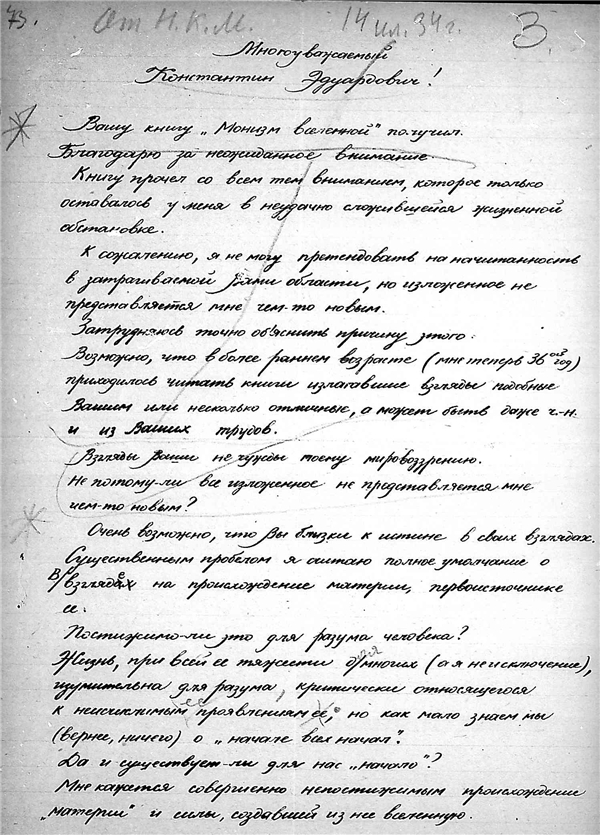 73.
От Н.К.М.
14 июл. 34 г.
3.
Многоуважаемый
Константин Эдуардович!
Вашу книгу „Монизм вселенной" получил.
Благодарю за неожиданное внимание
Книгу прочел со всем тем вниманием, которое только
оставалось у меня в неудачно сложившейся жизненной
обстановке.
К сожалению, я не могу претендовать на начитанность
в затрагиваемой Вами области, но изложенное не
представляется мне чем-то новым.
Затрудняюсь точно об'яснить причину этого:
Возможно, что в более раннем возрасте (мне теперь 36ой год)
приходилось читать книги излагавшие взгляды подобные
Вашим или несколько отличные, а может быть даже ч.-н.
и из Ваших трудов.
Взгляды Ваши не чужды моему мировоззрению.
Не потому-ли все изложенное не представляется мне
чем-то новым?
Очень возможно, что Вы близки к истине в своих взглядах.
Существенным пробелом я считаю полное умолчание о
В/взглядах на происхождение материи, первоисточнике
ее.
Постижимо-ли это для разума человека?
Жизнь, при всей ее тяжести для многих (а я не исключение),
изумительна для разума, критически относящегося
к неисчислимым ее проявлениям, но как мало знаем мы
(вернее, ничего) о „начале всех начал".
Да и существует-ли для нас „начало"?
Мне кажется совершенно непостижимым происхождение
„материи" и силы, создавшей из нее вселенную.